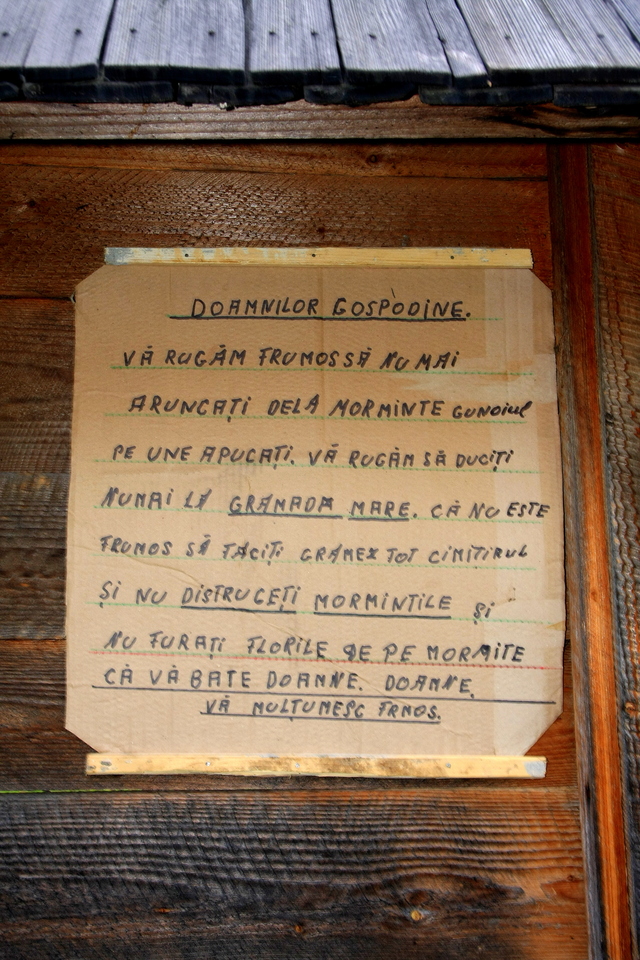 DOAMNILOR GOSPODINE.
VĂ RUGĂM FRUMOS SĂ NU MAI
ARUNCAȚI DELA MORMINTE GUNOIUL
PE UNE APUCAȚI. VĂ RUGĂM SĂ DUCIȚI
NUMAI LA GRAMADA MARE. CĂ NU ESTE
FRUMOS SĂ FACIȚI GRAMEX TOT CIMITIRUL
ȘI NU DISTRUGEȚI MORMINTILE ȘI
NU FURAȚI FLORILE DE PE MORMITE
CĂ VĂ BATE DOAMNE. DOAMNE.
VĂ MULȚUMESC FRMOS.